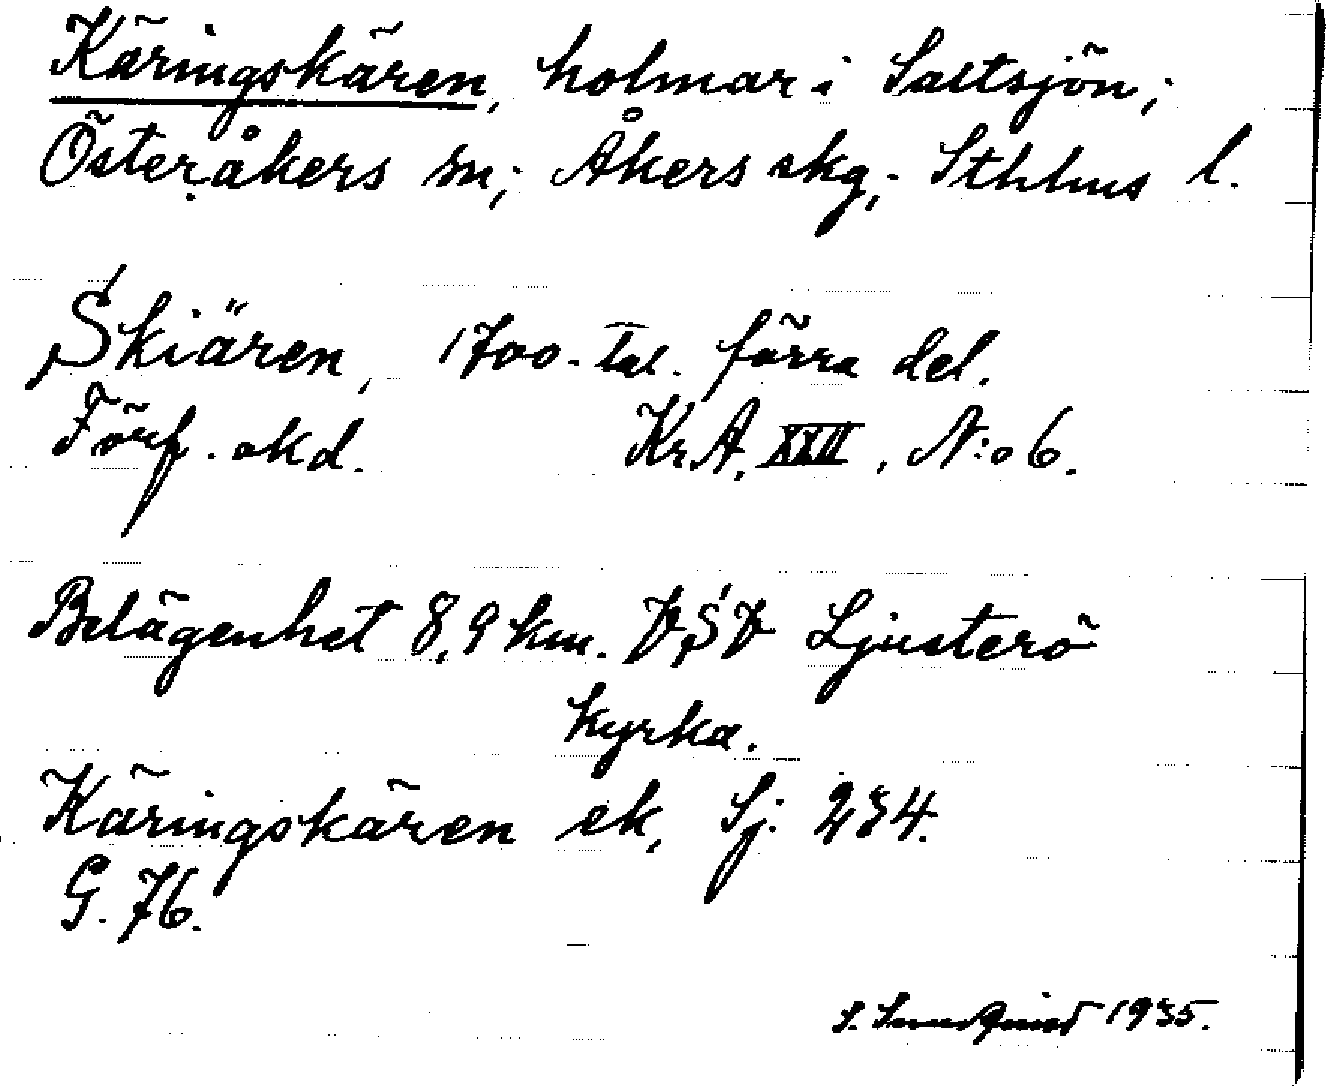 Käringskären, holmar i Saltsjön;
Österåkers sn; Åkers skg; Sthlms l.
Skiären, 1700-tal. förra del.
Förf. okd. Kr.A. XXII, N:o 6.
Belägenhet 8,9 km. VSV Ljusterö
kyrka.
Käringskären ek, Sj. 234.
G. 76.
S. 1935.